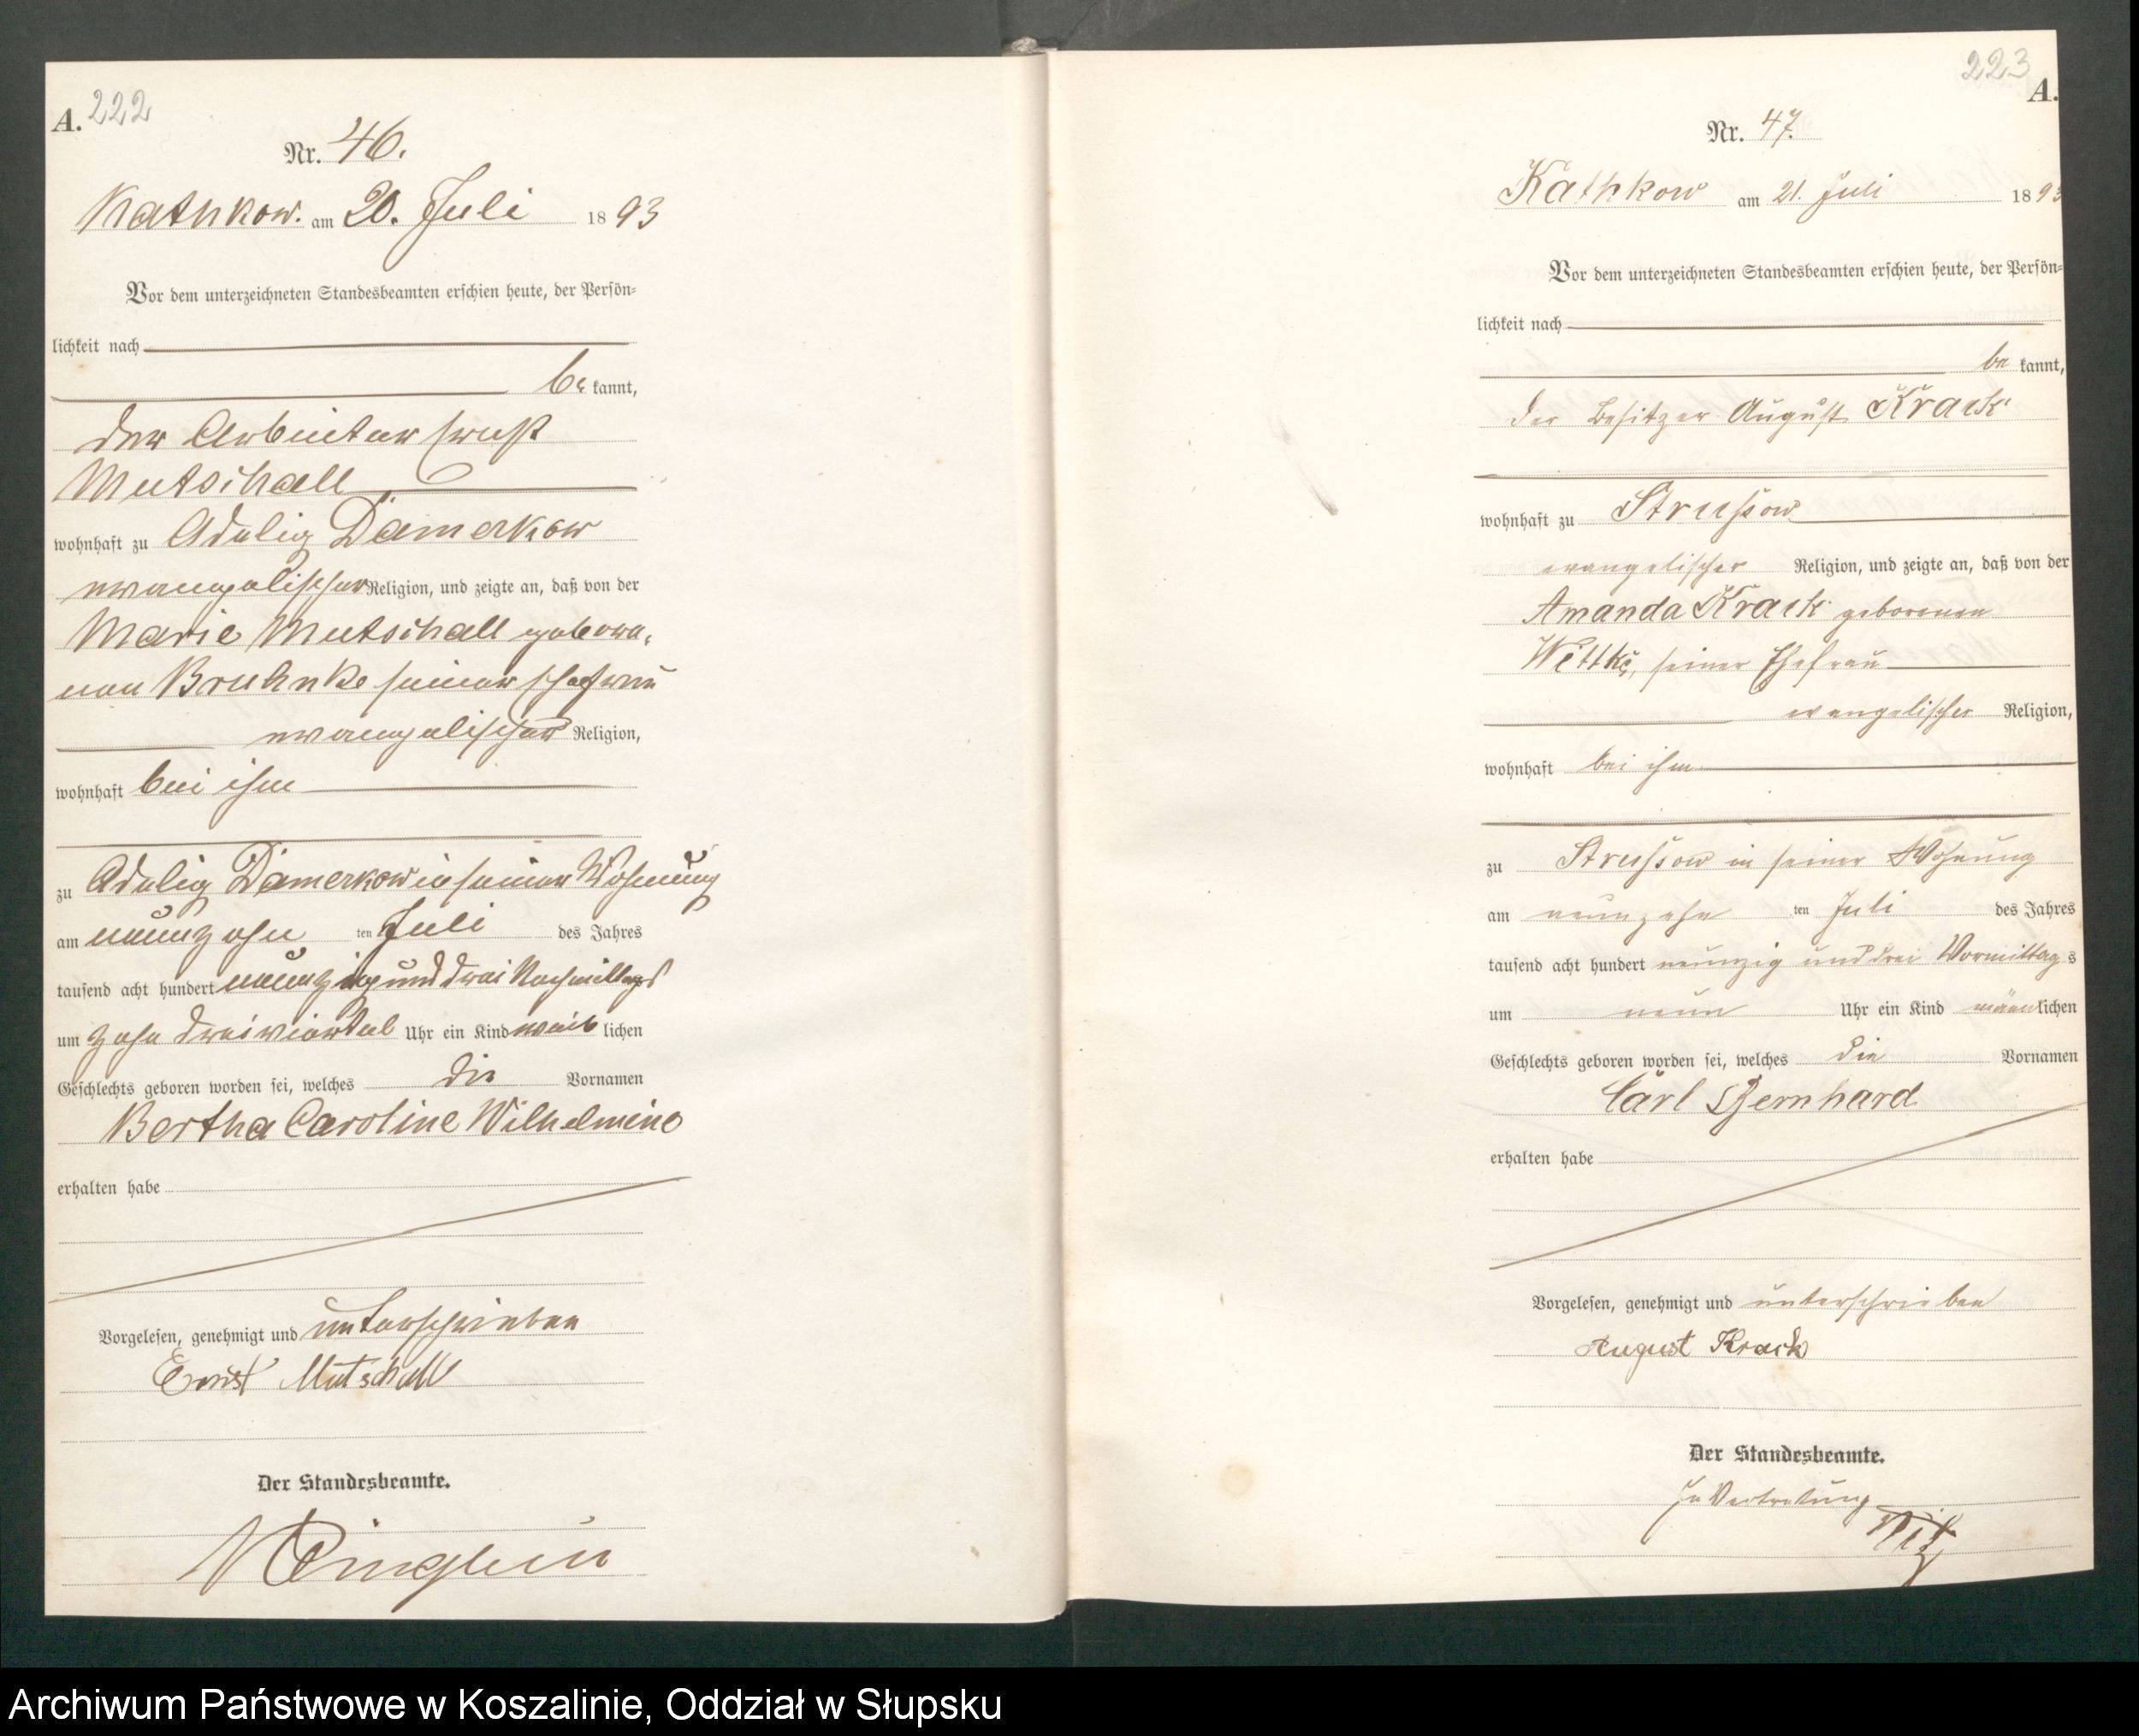 A. 222
Nr. 46.
Kathkow. am 20. Juli 1893
Vor dem unterzeichneten Standesbeamten erschien heute, der Persön-
lichkeit nach
be kannt,
der Arbeiter Ernst
Mutschall
wohnhaft zu Adelig Damerkow
evangelischer Religion, und zeigte an, daß von der
Marie Mutschall gebore-
nen Bruhnke seiner Ehefrau
evangelischer Religion,
wohnhaft bei ihm
zu Adelig Damerkow in seiner Wohnung
am neunzehn ten Juli des Jahres
tausend acht hundert neunzig und drei Nachmittags
um zehn dreiviertel Uhr ein Kind weib lichen
Geschlechts geboren worden sei, welches die Vornamen
Bertha Caroline Wilhelmine
erhalten habe
Vorgelesen, genehmigt und unterschrieben
Ernst Mutschall
Der Standesbeamte.
223
A.
Nr. 47.
Kathkow am 21. Juli 1893
Vor dem unterzeichneten Standesbeamten erschien heute, der Persön-
lichkeit nach
be kannt,
der Besitzer August Krack
wohnhaft zu Strussow
evangelischer Religion, und zeigte an, daß von der
Amanda Krack geborenen
Wettke, seiner Ehefrau
evangelischer Religion,
wohnhaft bei ihm
zu Strussow in seiner Wohnung
am neunzehn ten Juli des Jahres
tausend acht hundert neunzig und drei Vormittag s
um neun Uhr ein Kind männlichen
Geschlechts geboren worden sei, welches die Vornamen
Carl Bernhard
erhalten habe
Vorgelesen, genehmigt und unterschrieben
August Krack
Der Standesbeamte.
In Vertretung
Archiwum Państwowe w Koszalinie, Oddział w Słupsku